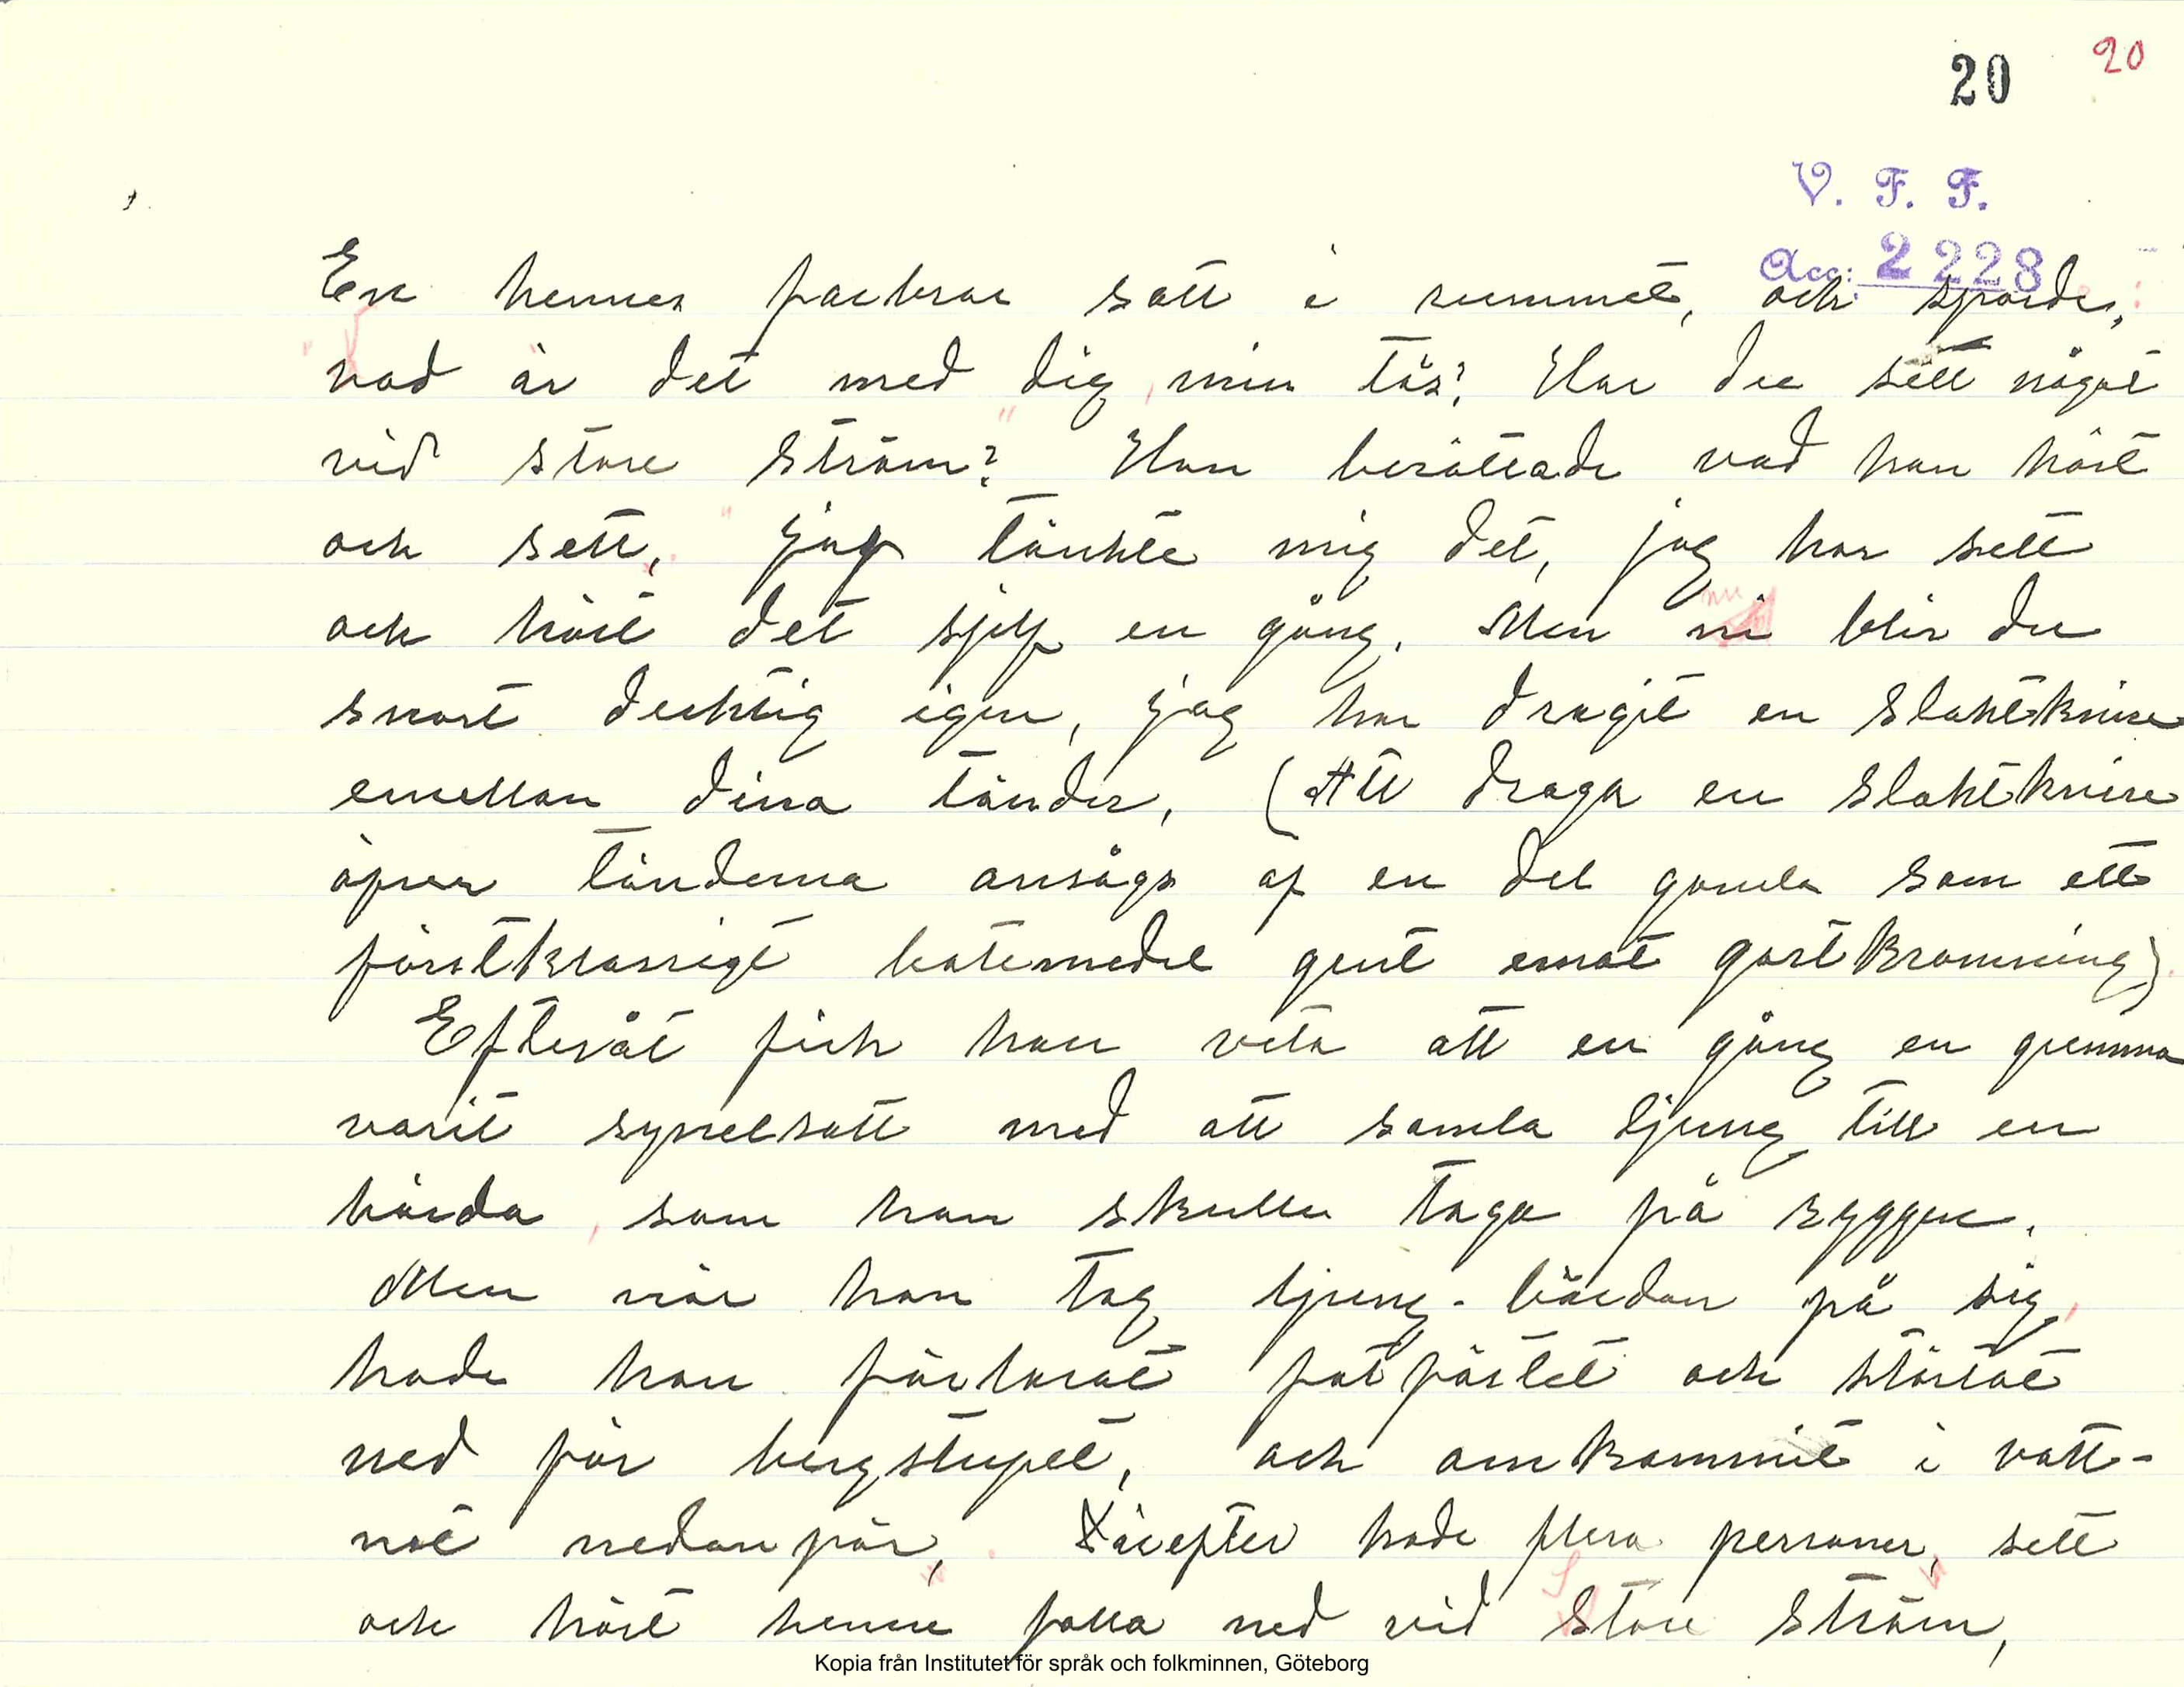 20 20
V. F. F.
Acc: 2228
En hennes farbror satt i rummet, och sporde,
vad är det med dig, min tös? Har du sett något
vid store ström? Hon berättade vad hon hört
och sett, "jag tänkte mig det, jag har sett
och hört det sjelf en gång. Men nu blir du
snart duktig igen, jag har dragit en slaktkniv
emellan dina tänder, (Att draga en slaktkniv
öfver tänderna ansågs af en del gamla som ett
förstklassigt botemedel gent emot gastkramning)
Efteråt fick hon veta att en gång en qvinna
varit sysselsatt med att samla ljung till en
börda, som hon skulle taga på ryggen.
Men när hon tog ljung-bördan på sig,
hade hon förlorat fotfästet och störtat
ned för bergstupet, och omkommit i vatt-
net nedanför, Därefter hade flera personer, sett
och hört henne falla ned vid Store ström,
Kopia från Institutet för språk och folkminnen, Göteborg